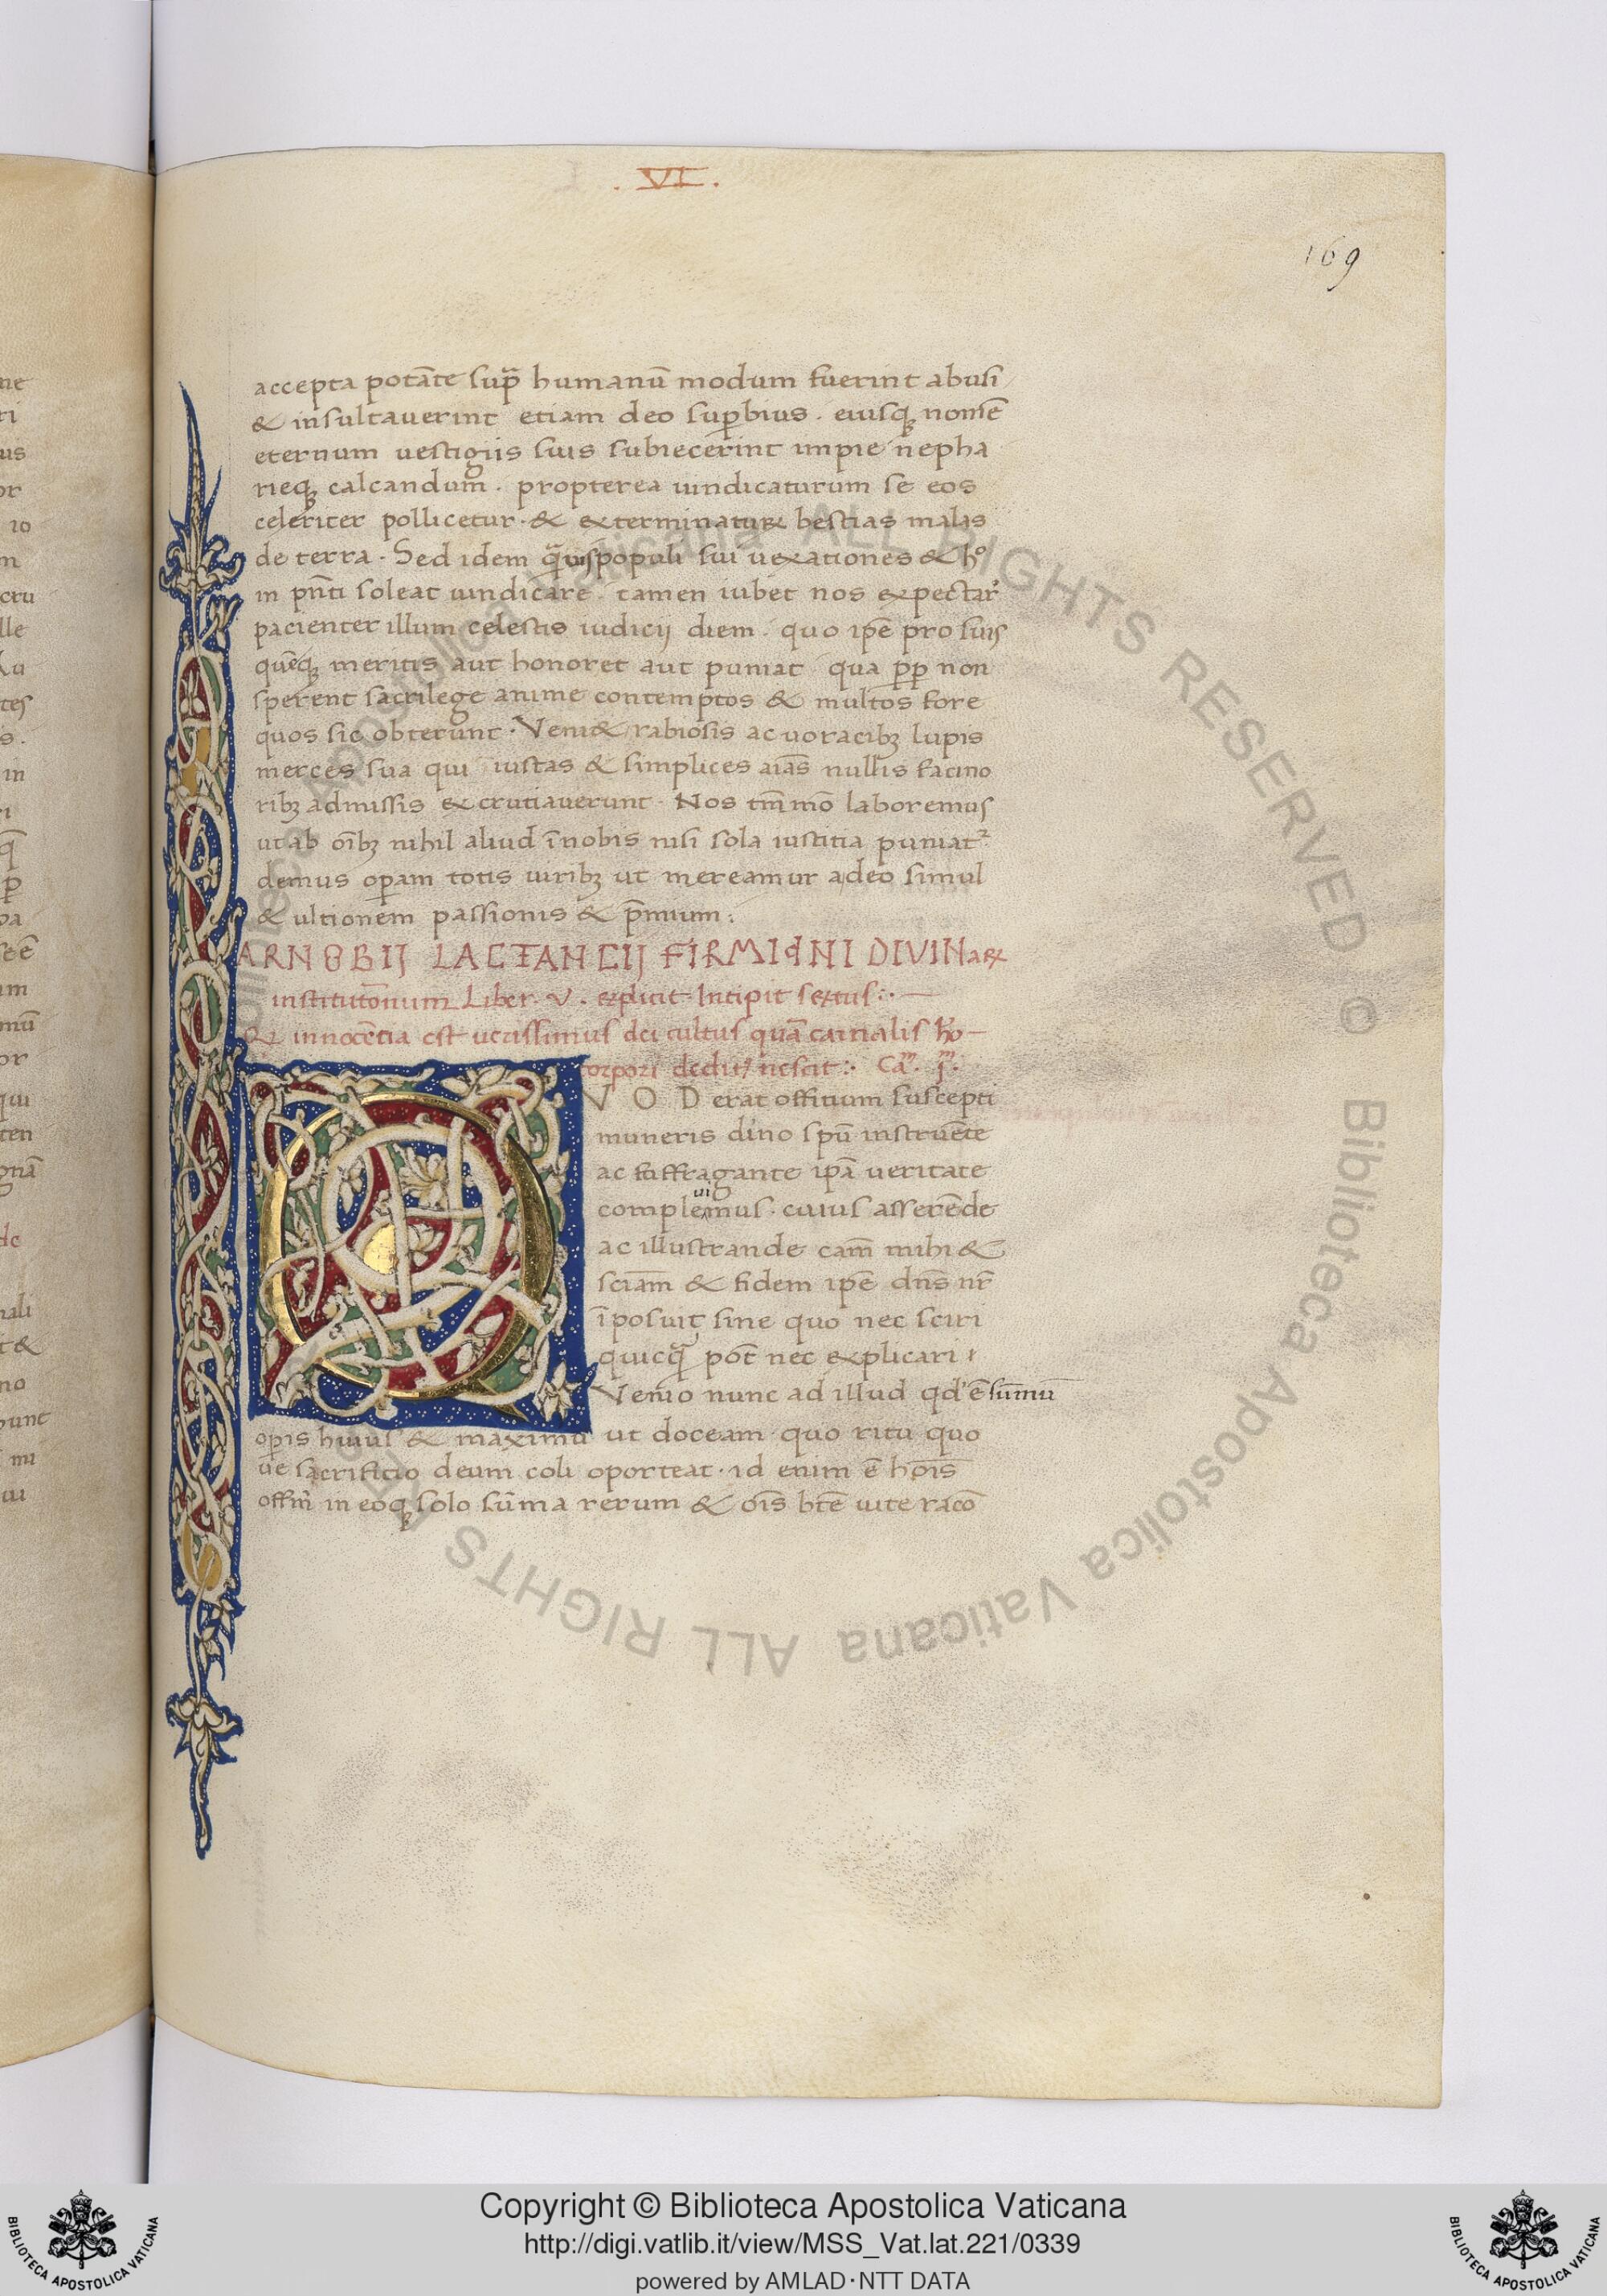 . VI .
169
accepta potāte sup̄ humanū modum fuerint abusi
& insultaverint etiam deo suꝑbius . eiusqꝫ nomē
eternum vestigiis suis subiecerint impie nepha
rieqꝫ calcandum . propterea vindicaturum se eos
celeriter pollicetur . & exterminaturꝝ bestias malas
de terra . Sed idem populi sui vexationes &
in pn̄ti soleat vindicare . tamen iubet nos expectar̄
pacienter illum celestis iudicij diem . quo ip̄e pro suis
quēqꝫ meritis aut honoret aut puniat qua pp̄ non
sperent sacrilege anime contemptos & multos fore
quos sic obterunt . Veni& rabiosis ac voracibꝫ lupis
merces sua qui iustas & simplices aīas nullis facino
ribꝫ admissis excrutiaverunt . Nos tm̄mō laboremus
ut ab oībꝫ nihil aliud ī nobis nisi sola iustitia puniat᷑
demus oꝑam totis viribꝫ ut mereamur a deo simul
& ultionem passionis & p̄mium :
ARNOBIJ LACTANCIJ FIRMIANI DIVINaꝝ
institutōnum Liber . V . explicit Incipit sextus : . —
innocētia est verissimus dei cultus quā carnalis hō —
corpori deditꝰ nescit : . Caᵐ . jᵐ .
V O D erat offitium suscepti
muneris diīno spū instruēte
ac suffragante ipā veritate
complemus . cuius asserēde
ui
ac illustrande cām mihi &
sciam & fidem ipē dn̄s nr̄
īposuit sine quo nec sciri
quicq̄ pōt nec explicari
Venio nunc ad illud qd' ē sūmū
oꝑis huius & maximū ut doceam quo ritu quo
ve sacrificio deum coli oporteat . id enim ē hoīs
offm̄ in eoqꝫ solo sūma rerum & oīs btē vite racō
Copyright © Biblioteca Apostolica Vaticana
http://digi.vatlib.it/view/MSS_Vat.lat.221/0339
powered by AMLAD·NTT DATA
BIBLIOTECA APOSTOLICA VATICANA
BIBLIOTECA APOSTOLICA VATICANA